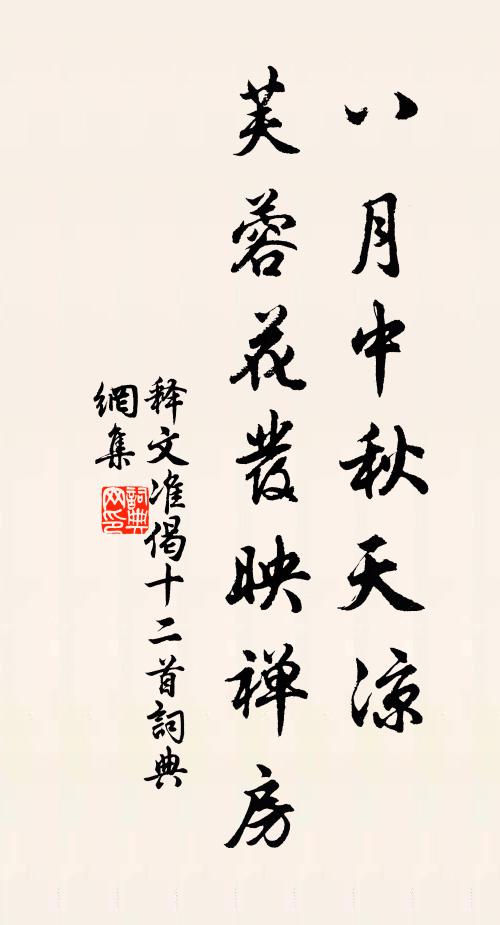 八月中秋天凉
芙蓉花發映禅房
释文准偈十二首詞典
網集
詞典
网印